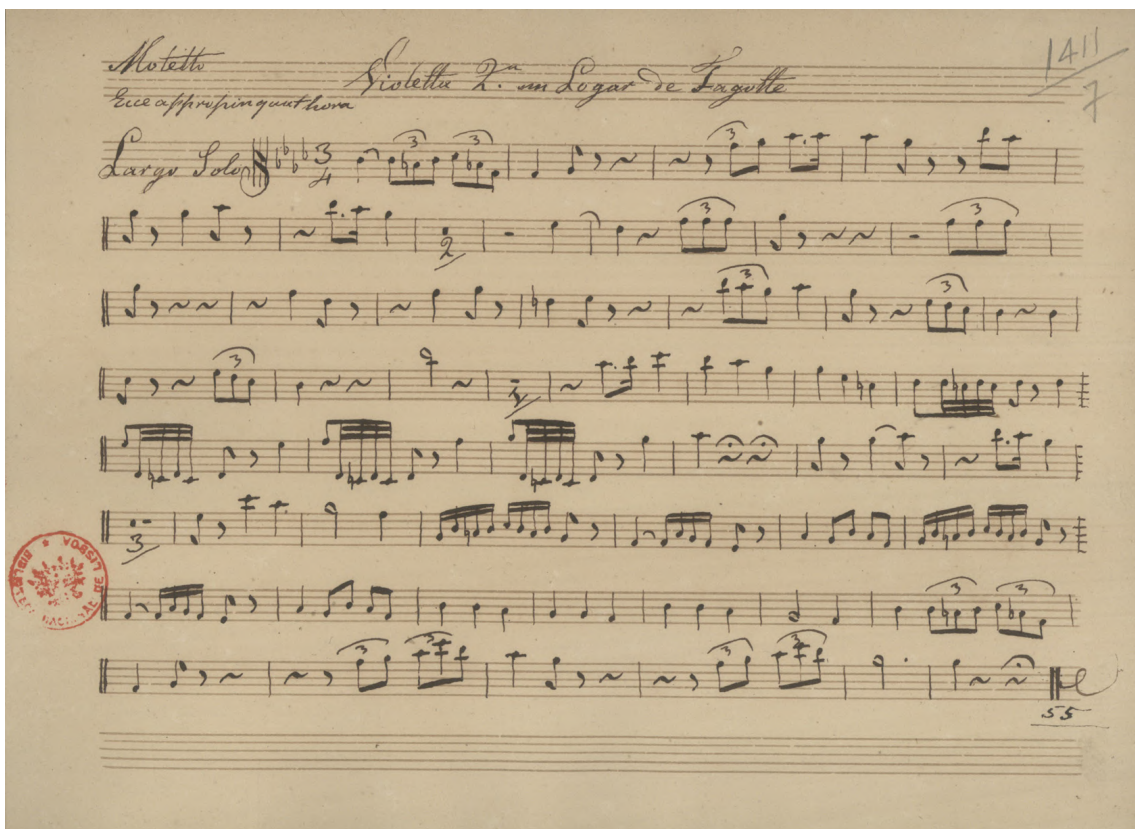 Motetto
Violetta 2.ª em Logar de Fagotte
1411
7
Ecce appropinquat hora
Largo Solo 3 4 3 3 3
2 3 3
3 3
3 1
3
BIBLIOTECA NACIONAL DE LISBOA
3 3
3 3 3 3
55